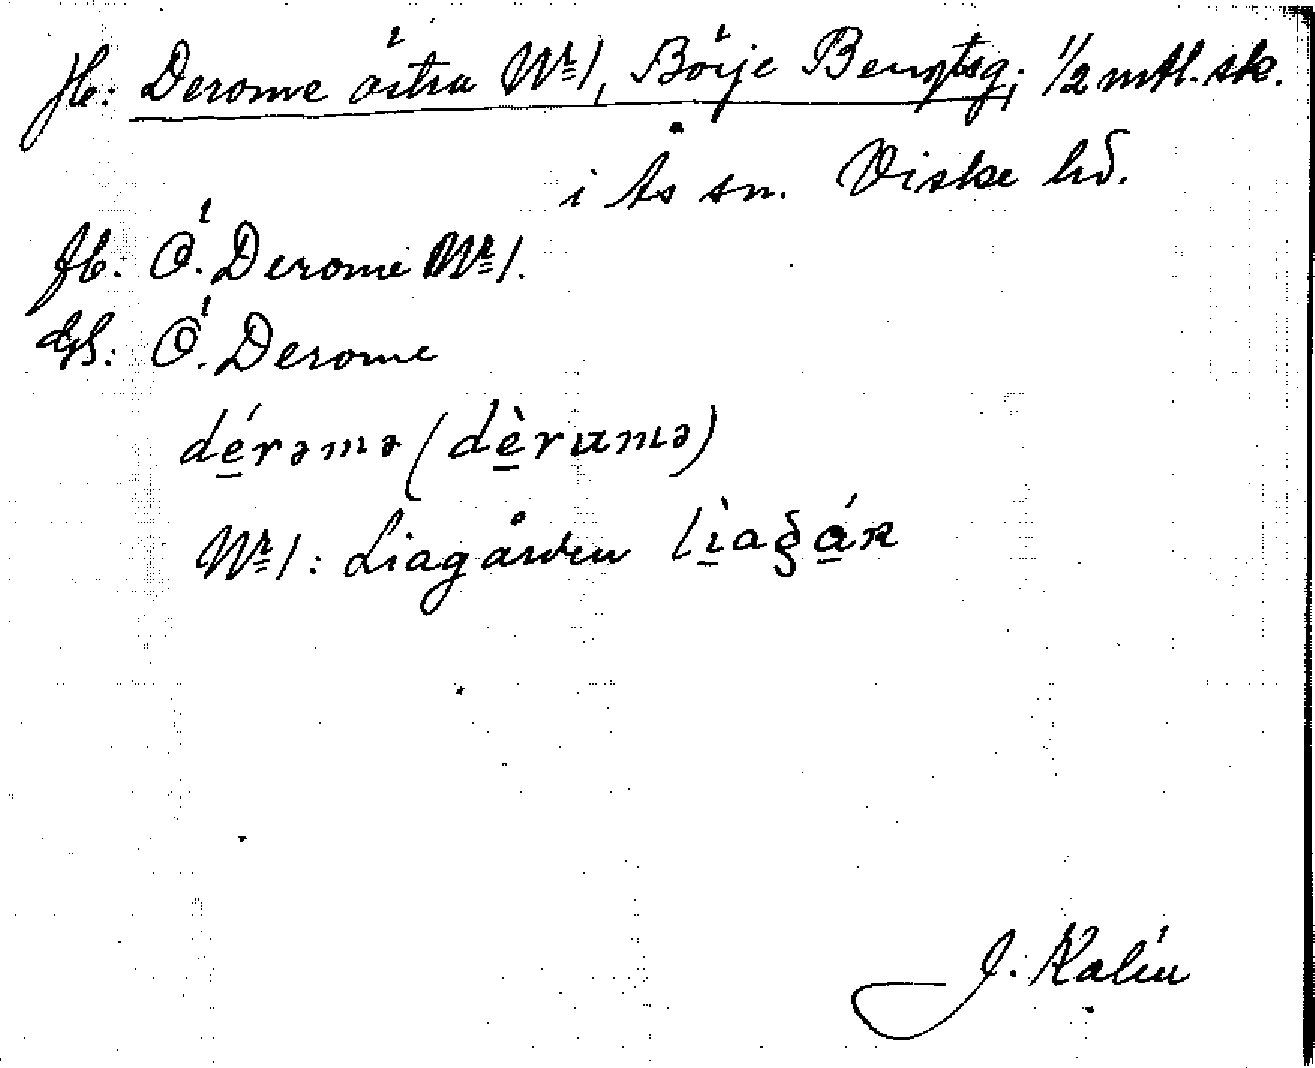 Jb: Derome östra Nr 1, Börje Bengtsg., 1/2 mtl. sk.
i Ås sn. Viske hd.
fb. Ö. Derome Nr 1.
GS: Ö. Derome
dérəmə (dèrumə)
Nr 1: Liagården lìagár
J. Kalén